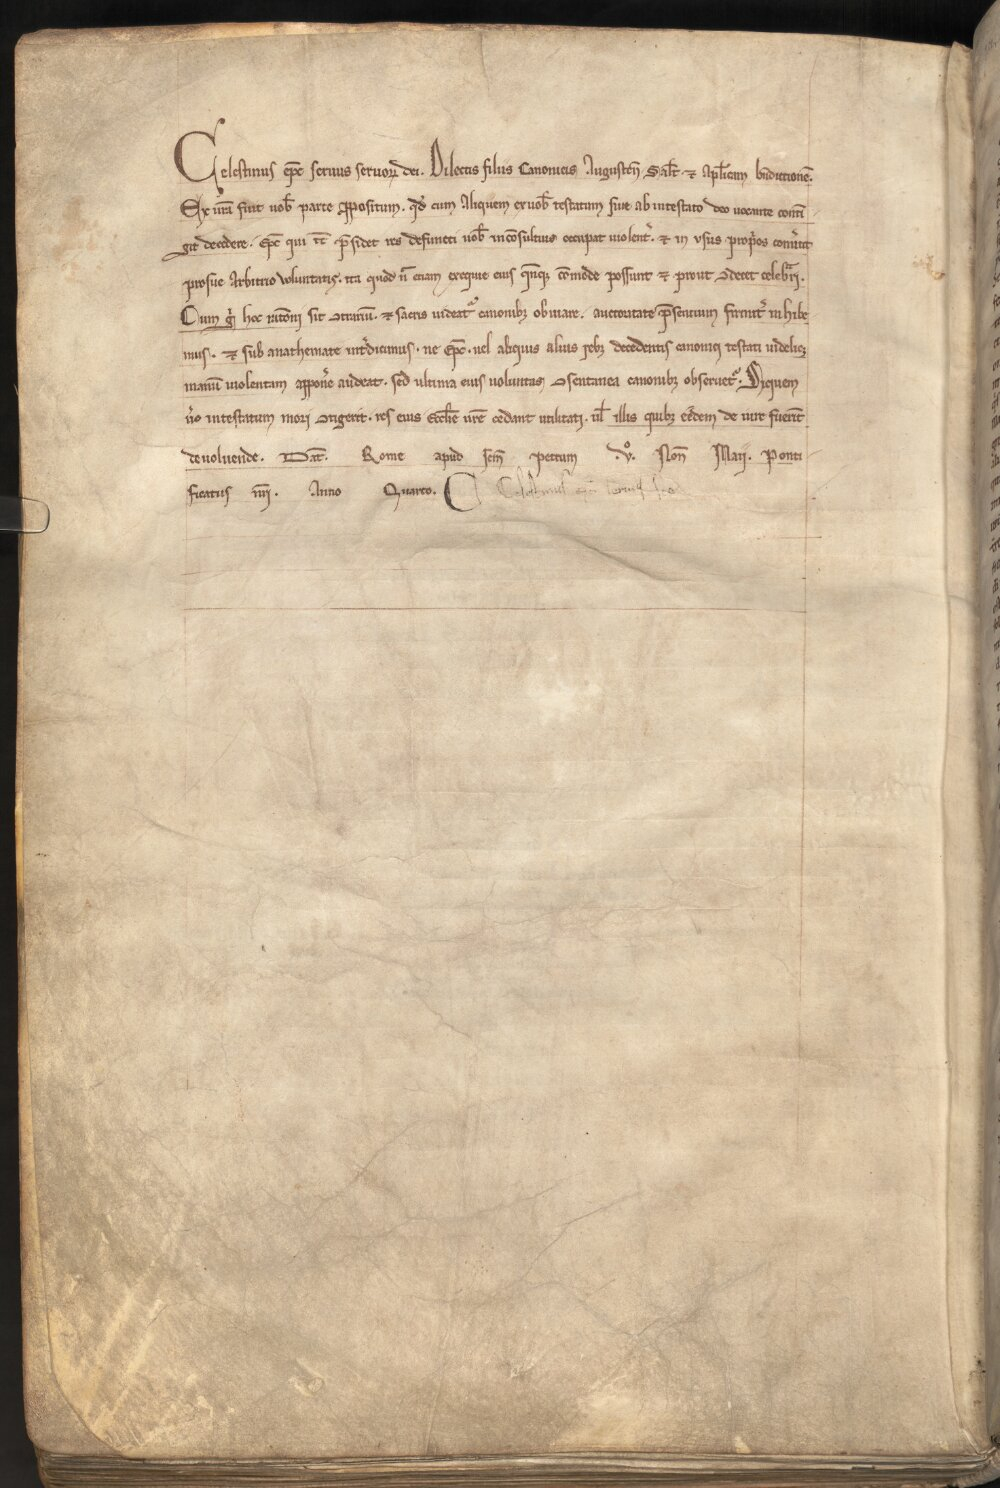 Celestinus ep̄c seruus seruoꝝ dei. Dilectis filiis Canonicis Augusten̄ Sal̄t ⁊ Ap̄licam bn̄dictionē.
Ex ur̄a fuit nob̄ parte ꝓpositum. qd̄ cum Aliquem ex uob̄ testatum siue ab intestato deo uocante conti
git decedere. Ep̄c qui ꝑ t̄ p̄sidet res defuncti uob̄ inconsultis occupat uiolent᷑. ⁊ in usus propͥos conu̓tit
pro sue Arbitrio voluntatis. ita quod n̄ etiam exequie eius qn̄qꝫ cōmode possunt ⁊ prout ꝯdecet celebrari.
Cum gͥ hoc rationi sit ꝯtrariū. ⁊ sacris uideat᷑ canonibꝫ obuiare. auctoritate p̄sentium firmit᷑ inhibe
mus. ⁊ sub anathemate int̓dicimus. ne Ep̄c. uel aliquis alius rebꝫ decedentis canonici testati uidelicꝫ
manū uiolentam apponͤe audeat. sed ultima eius uoluntas ꝯsentanea canonibꝫ obseruet᷑. Si quem
u̓o intestatum mori ꝯtigerit. res eius Eccl̄ie ur̄e cedant utilitati. ul̄ illis quibꝫ eedem de iure fuerīt
deuoluende. Dat̄. Rome apud sc̄m petrum .v̊. Non̄ Maij. Ponti
ficatus nr̄i. Anno Quarto. C Celestinus ep̄c seruus seruo